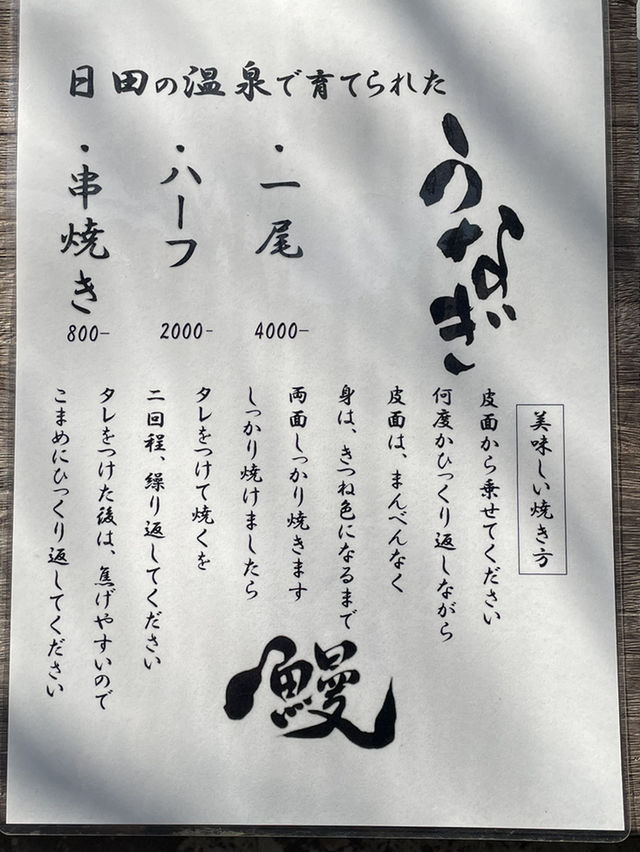 日田の温泉で育てられた
うなぎ
・一尾
4000-
・ハーフ
2000-
・串焼き
800-
美味しい焼き方
皮面から乗せてください
何度かひっくり返しながら
皮面は、まんべんなく
身は、きつね色になるまで
両面しっかり焼きます
しっかり焼けましたら
タレをつけて焼くを
二回程、繰り返してください
タレをつけた後は、焦げやすいので
こまめにひっくり返してください
鰻